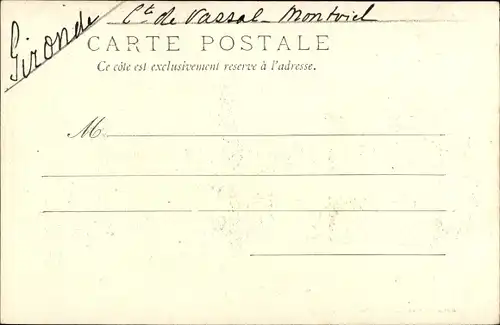 Gironde
Cte de Vassal-Montviel
CARTE POSTALE
Ce côté est exclusivement reservé à l'adresse.
M